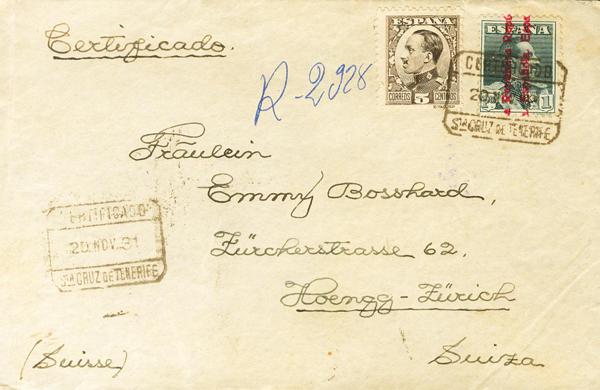 Certificado.
R-2928
ESPAÑA
CORREOS 5 CENTIMOS
ESPAÑA
1
CERTIFICADO
20 NOV.
Sta CRUZ DE TENERIFE
Fräulein
Emmy Bosshard,
Zürcherstrasse 62,
Hoengg-Zürich
(Suisse) Suiza
CERTIFICADO
20 NOV. 31
Sta CRUZ DE TENERIFE